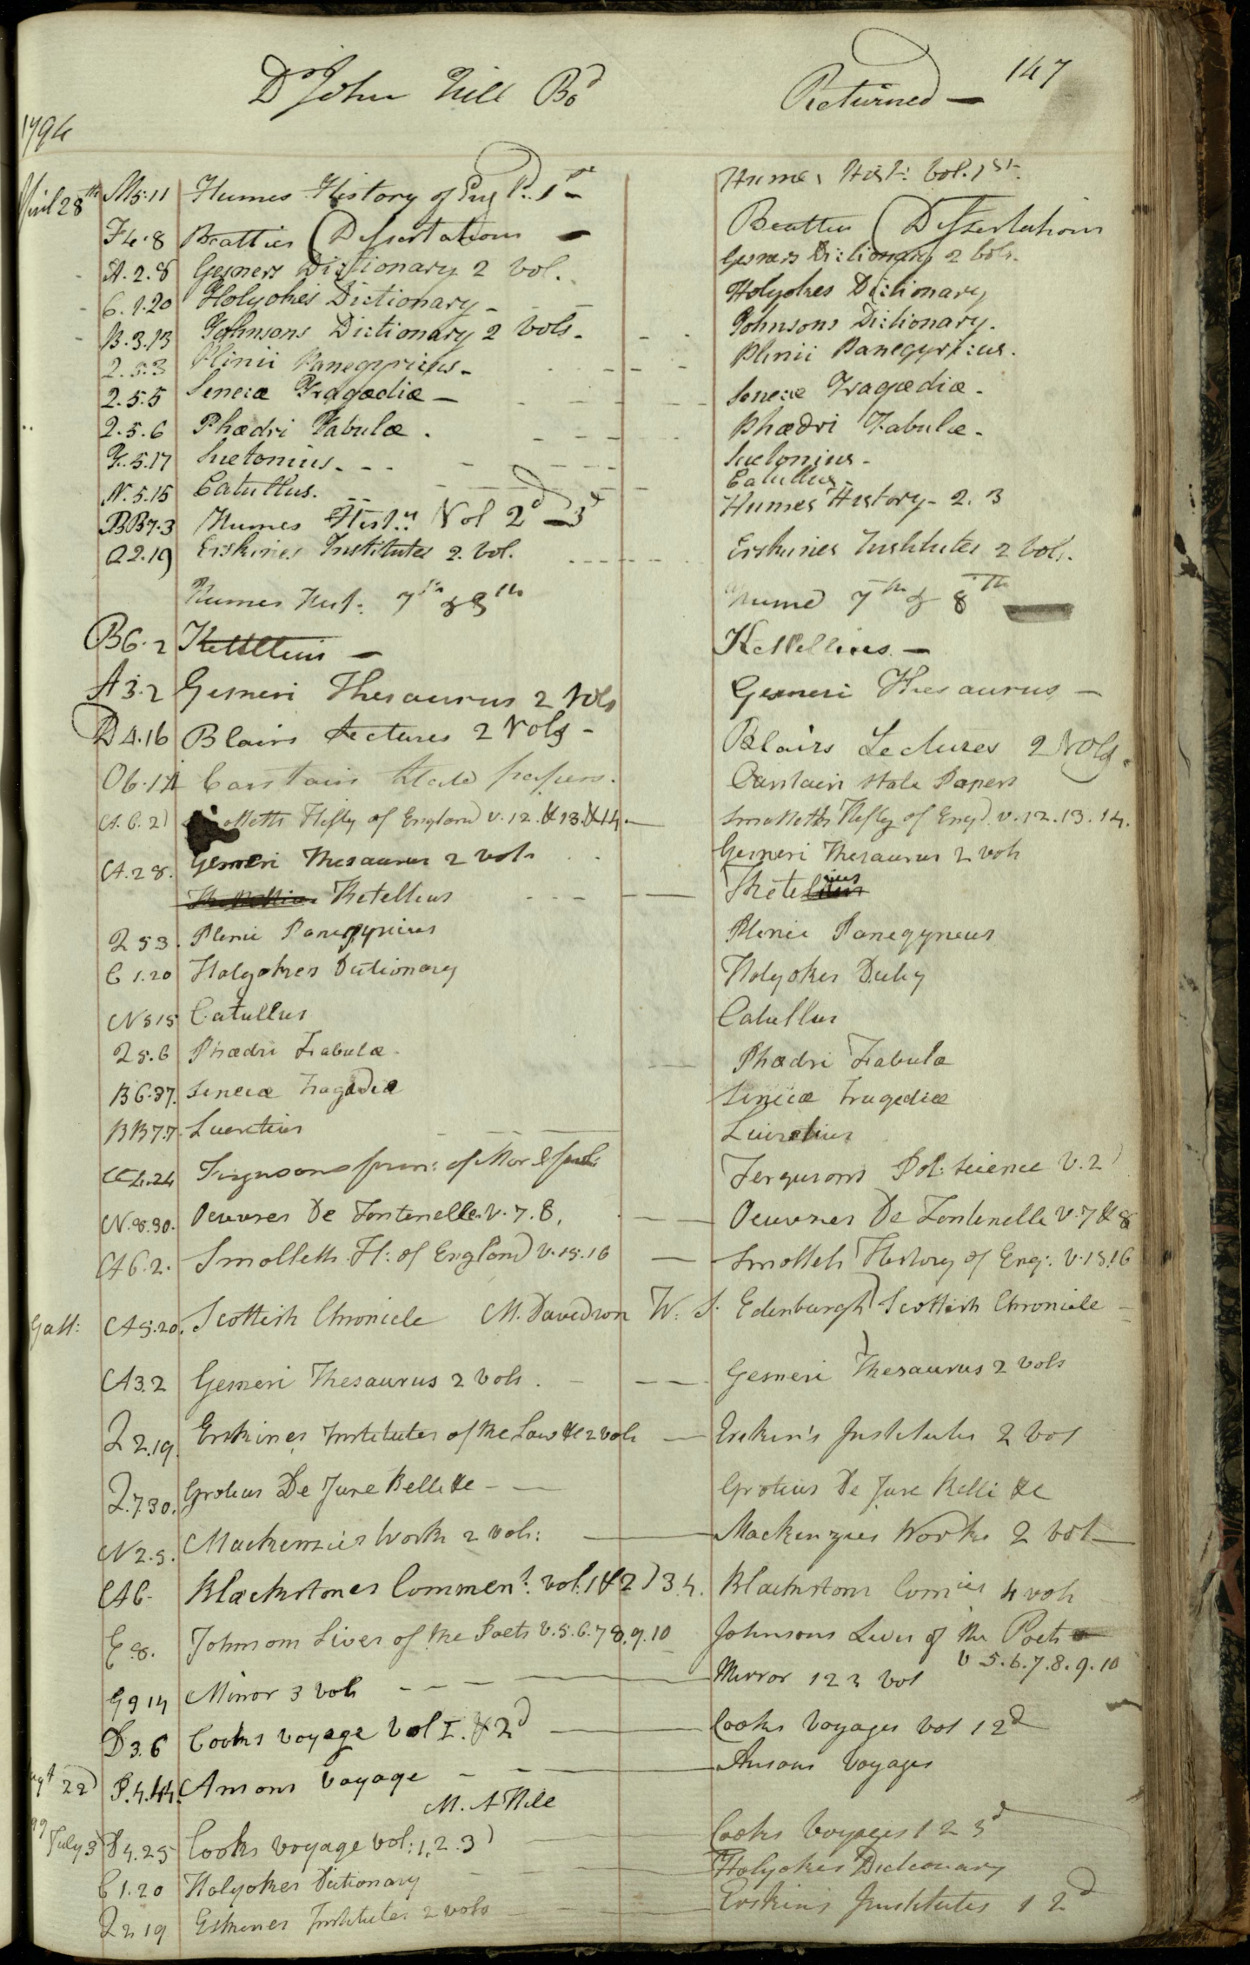 Dr John Hill Bod Returned — 147
1794
April 28th M5.11 Humes History of Eng P. 1st — Humes Hist: Vol. 1st.
F4.8 Beatties Dissertations — Beatties Dissertations
A.2.8 Gesners Dictionary 2 vol. Gesners Dictionary 2 Vols.
C.1.20 Holyokes Dictionary — Holyokes Dictionary
B.3.13 Johnsons Dictionary 2 Vols. Johnsons Dictionary.
2.5.3 Plinii Panegyricus. Plinii Panegyricus.
2.5.5 Senecæ Tragædiæ — Senecæ Tragædiæ.
2.5.6 Phædri Fabulæ. Phædri Fabulæ.
Y.5.17 Suetonius. Suetonius.
N.5.15 Catullus. Catullus.
BB7.3 Humes Histy Vol 2d — 3d Humes History. 2. 3
Q2.19 Erskines Institutes 2. Vol. Erskines Institutes 2 Vols.
Humes Hist: 7th & 8th Hume 7th & 8th
B6.2 Kettellius — Kettellius. —
A3.2 Gesneri Thesaurus 2 Vols Gesneri Thesaurus —
D4.16 Blairs Lectures 2 Vols — Blairs Lectures 2 Vols.
O6.14 Carstairs State papers. Carstairs State Papers
A.6.2 Smolletts Histy of England v.12.&13.&14. — Smolletts Histy of Engd v.12.13.14.
A.2.8. Gesneri Thesaurus 2 vols Gesneri Thesaurus 2 vols
Thetellius Thetellius
2 5 3. Plinii Panegyricus Plinii Panegyricus
C 1.20 Holyokes Dictionary Holyokes Dicty
N 5 15 Catullus Catullus
2 5.6 Phædri Fabulæ. Phædri Fabulæ
B6.37. Senecæ Tragædiæ Senecæ Tragediæ
BB7.7. Lucretius Lucretius
E4.24 Fergusons prin: of Mor & Fergusons Pol: Science V.2
N.8.30. Oeuvres De Fontenelle. v.7.8. Oeuvres De Fontenelle v.7 & 8
A6.2. Smolletts H: of England v.15.16 — Smolletts History of Eng: v.15.16
Gall: A5.20. Scottish Chronicle M. Davidson W. S. Edinburgh Scottish Chronicle
A3.2 Gesneri Thesaurus 2 vols. Gesneri Thesaurus 2 vols
2 2.19. Erskines Institutes of the Law &c 2 vols — Erskin's Institutes 2 Vol
2.7.30. Grotius De Jure Belli &c — Grotius De Jure Belli &c
N 2.5. Mackenzies Works 2 vols: — Mackenzies Works 2 Vol —
A6. Blackstones Comment: vol: 1 & 2) 3.4. Blackstons Comries 4 vols
E.8. Johnsons Lives of the Poets v.5.6.7 8.9.10 Johnsons Lives of the Poets
v 5.6.7.8.9.10
G9 14 Mirror 3 vols — Mirror 1 2 3 vol
D3.6 Cooks voyage Vol I. & 2d — Cooks Voyages Vol 1 2d
22 P.4.44. Ansons Voyage — Ansons Voyages
M. A Hill
July 3 D4.25 Cooks voyage vol: 1, 2. 3) Cooks Voyages 1 2 3d
C 1.20 Holyokes Dictionary Holyokes Dictionary
2 2 19 Erskines Institutes 2 vols Erskins Institutes 1 2d